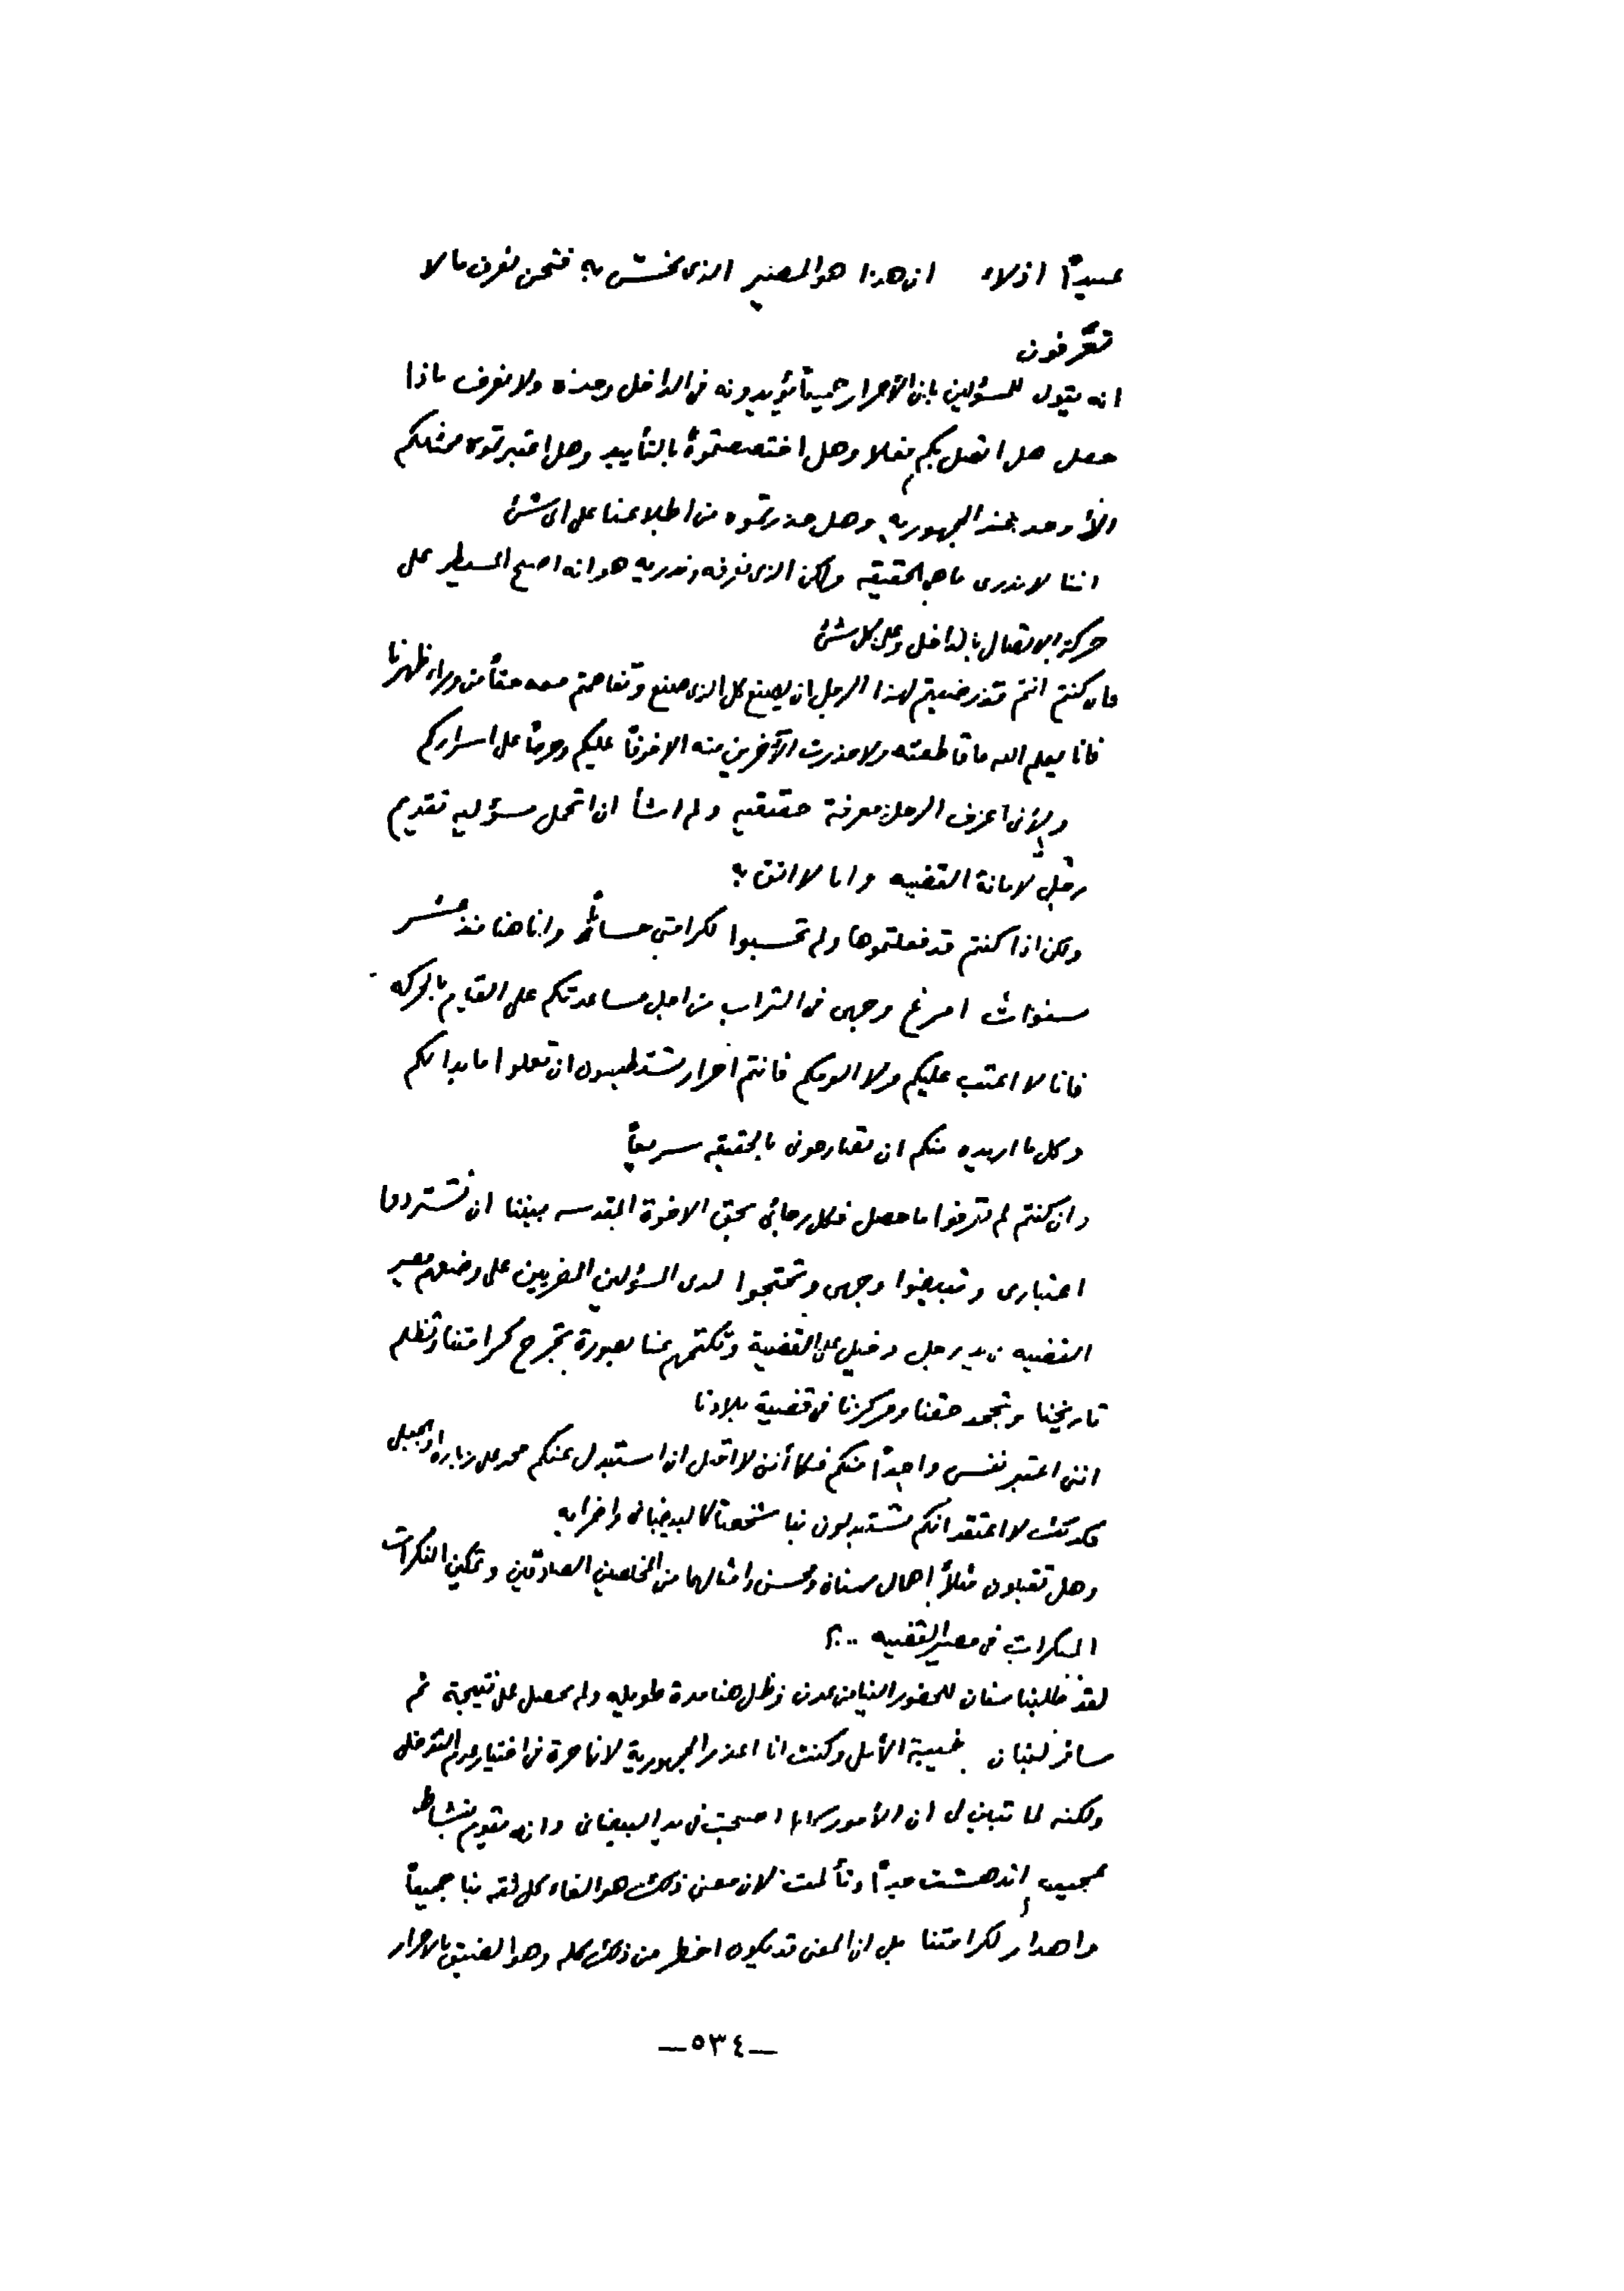 عبيداً اذلاء ان هذا هو المصير الذى نخشى به فنحن نعرف مالا
تعرفون
انه يقول للمسؤلين بان الأحرار جميعاً يؤيدونه فى الداخل وحده ولا نعرف ماذا
حصل هل اتصل بكم فعلا وهل اختصصتموه بالتأييد وهل اعتبرتموه ممثلكم
الأوحد عند الجمهوريه وهل حذرتموه من اطلاعنا على اى شئ
اننا لا ندرى ما هى الحقيقه ولكن الذى نعرفه وندريه هو انه اصبح المسيطر على
حركة الاتصال بالداخل وعلى كل شئ
فان كنتم انتم قد رضيتم لهذا الرجل ان يصنع كل الذى صنع وتفاهمتم معه حقاً من وراء ظهرنا
فانا يعلم الله ما قاطعته ولا حذرت الآخرين منه الا خوفاً عليكم وحرصاً على اسراركم
ولأنى اعرف الرجل معرفة حقيقيه ولم اشأ ان اتحمل مسؤليه تقديم
رجل لامانة القضيه وانا لا اثق به
ولكن اذا كنتم قد فعلتموها ولم تحسبوا لكرامتى حساباً وانا هنا منذ عشر
سنوات امرغ وجهى فى التراب من اجل مساعدتكم على القيام بالحركه
فانا لا اعتب عليكم ولا الومكم فانتم احرار تستطيعون ان تعملوا ما بدا لكم
وكل ما اريده منكم ان تصارحونى بالحقيقه سريعاً
وان كنتم لم تعرفوا ما حصل فكل رجائى بحق الاخوة المقدسه بيننا ان تستردوا
اعتبارى وتبيضوا وجهى وتحتجوا لدى المسؤلين المصريين على وضعهم مصير
القضيه فى يد رجل دخيل على القضية وتكتمهم عنا بصورة تجرح كرامتنا وتظلم
تاريخنا وتجمد حقنا ومركزنا فى قضية بلادنا
اننى اعتبر نفسى واحداً منكم فكما أننى لا اقبل ان استبدل عنكم محمد على زباره او الجبل
فكذلك لا اعتقد انكم تستبدلون بنا شخصاً كالبيضانى واضرابه
وهل تقبلون مثلاً اهمال سنان ومحسن وامثالهما من المخلصين الصادقين وتمكين النكرات
المنكرات فى مصير القضيه ..؟
لقد طلبنا سنان للحضور الينا من عدن وظل هنا مدة طويله ولم يحصل على نتيجة ثم
سافر لبنان بخيبة الأمل وكنت انا اعذر الجمهورية لانها حرة فى اختيار عدم التدخل
ولكنه لما تبين لى ان الأمور كلها اصبحت فى يد البيضانى وانه يقوم بنشاط
عجيب اندهشت جداً وتألمت لان معنى ذلك هو الغاء كل ثقه بنا جميعاً
واهدار لكرامتنا بل ان المعنى قد يكون اخطر من ذلك كله وهو الضيق بالاحرار
—٥٣٤—